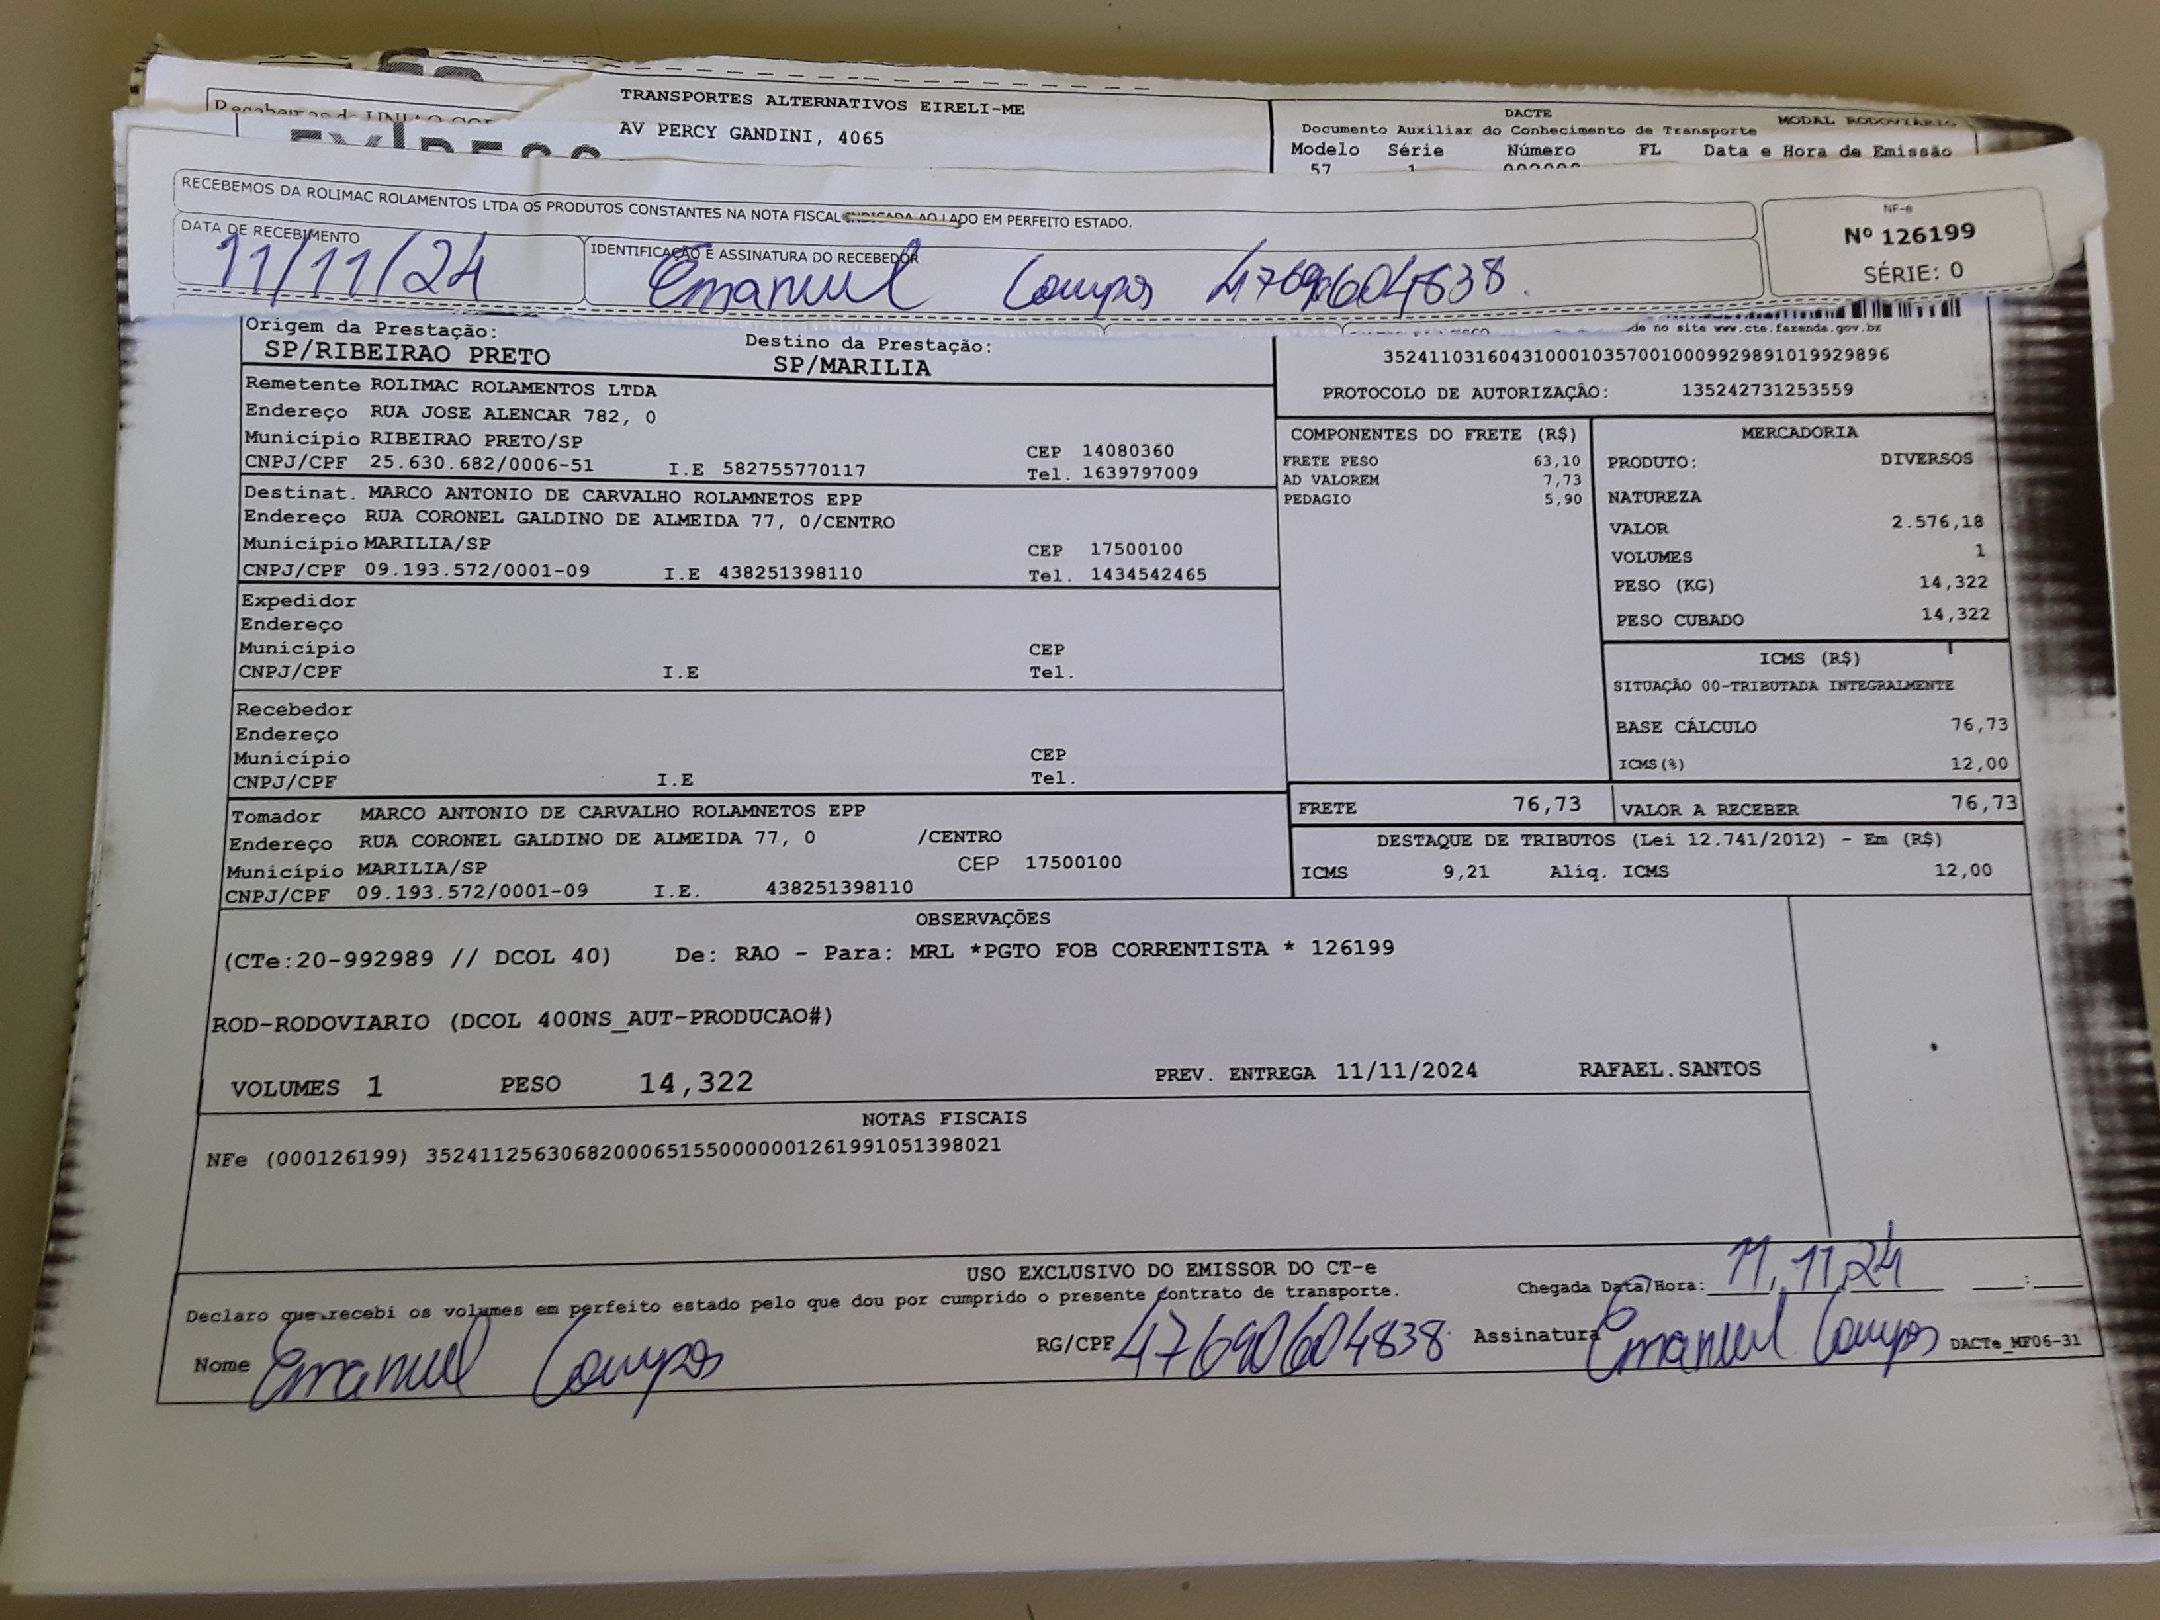 TRANSPORTES ALTERNATIVOS EIRELI-ME
AV PERCY GANDINI, 4065
DACTE
MODAL RODOVIÁRIO
Documento Auxiliar do Conhecimento de Transporte
Modelo Série Número FL Data e Hora de Emissão
57 1
RECEBEMOS DA ROLIMAC ROLAMENTOS LTDA OS PRODUTOS CONSTANTES NA NOTA FISCAL INDICADA AO LADO EM PERFEITO ESTADO.
DATA DE RECEBIMENTO
11/11/24
IDENTIFICAÇÃO E ASSINATURA DO RECEBEDOR
Emanuel Campos 47690604838
NF-e
Nº 126199
SÉRIE: 0
de no site www.cte.fazenda.gov.br
Origem da Prestação:
SP/RIBEIRAO PRETO
Destino da Prestação:
SP/MARILIA
35241103160431000103570010009929891019929896
PROTOCOLO DE AUTORIZAÇÃO: 135242731253559
Remetente ROLIMAC ROLAMENTOS LTDA
Endereço RUA JOSE ALENCAR 782, 0
Município RIBEIRAO PRETO/SP CEP 14080360
CNPJ/CPF 25.630.682/0006-51 I.E 582755770117 Tel. 1639797009
Destinat. MARCO ANTONIO DE CARVALHO ROLAMNETOS EPP
Endereço RUA CORONEL GALDINO DE ALMEIDA 77, 0/CENTRO
Município MARILIA/SP CEP 17500100
CNPJ/CPF 09.193.572/0001-09 I.E 438251398110 Tel. 1434542465
Expedidor
Endereço
Município CEP
CNPJ/CPF I.E Tel.
Recebedor
Endereço
Município CEP
CNPJ/CPF I.E Tel.
Tomador MARCO ANTONIO DE CARVALHO ROLAMNETOS EPP
Endereço RUA CORONEL GALDINO DE ALMEIDA 77, 0 /CENTRO
Município MARILIA/SP CEP 17500100
CNPJ/CPF 09.193.572/0001-09 I.E. 438251398110
COMPONENTES DO FRETE (R$)
FRETE PESO 63,10
AD VALOREM 7,73
PEDAGIO 5,90
MERCADORIA
PRODUTO: DIVERSOS
NATUREZA
VALOR 2.576,18
VOLUMES 1
PESO (KG) 14,322
PESO CUBADO 14,322
ICMS (R$)
SITUAÇÃO 00-TRIBUTADA INTEGRALMENTE
BASE CÁLCULO 76,73
ICMS(%) 12,00
FRETE 76,73 VALOR A RECEBER 76,73
DESTAQUE DE TRIBUTOS (Lei 12.741/2012) - Em (R$)
ICMS 9,21 Aliq. ICMS 12,00
OBSERVAÇÕES
(CTe:20-992989 // DCOL 40) De: RAO - Para: MRL *PGTO FOB CORRENTISTA * 126199
ROD-RODOVIARIO (DCOL 400NS_AUT-PRODUCAO#)
VOLUMES 1 PESO 14,322 PREV. ENTREGA 11/11/2024 RAFAEL.SANTOS
NOTAS FISCAIS
NFe (000126199) 35241125630682000651550000001261991051398021
USO EXCLUSIVO DO EMISSOR DO CT-e
Declaro que recebi os volumes em perfeito estado pelo que dou por cumprido o presente contrato de transporte.
Chegada Data/Hora: 11.11.24 __:__
Nome Emanuel Campos RG/CPF 47690604838 Assinatura Emanuel Campos DACTe_MF06-31